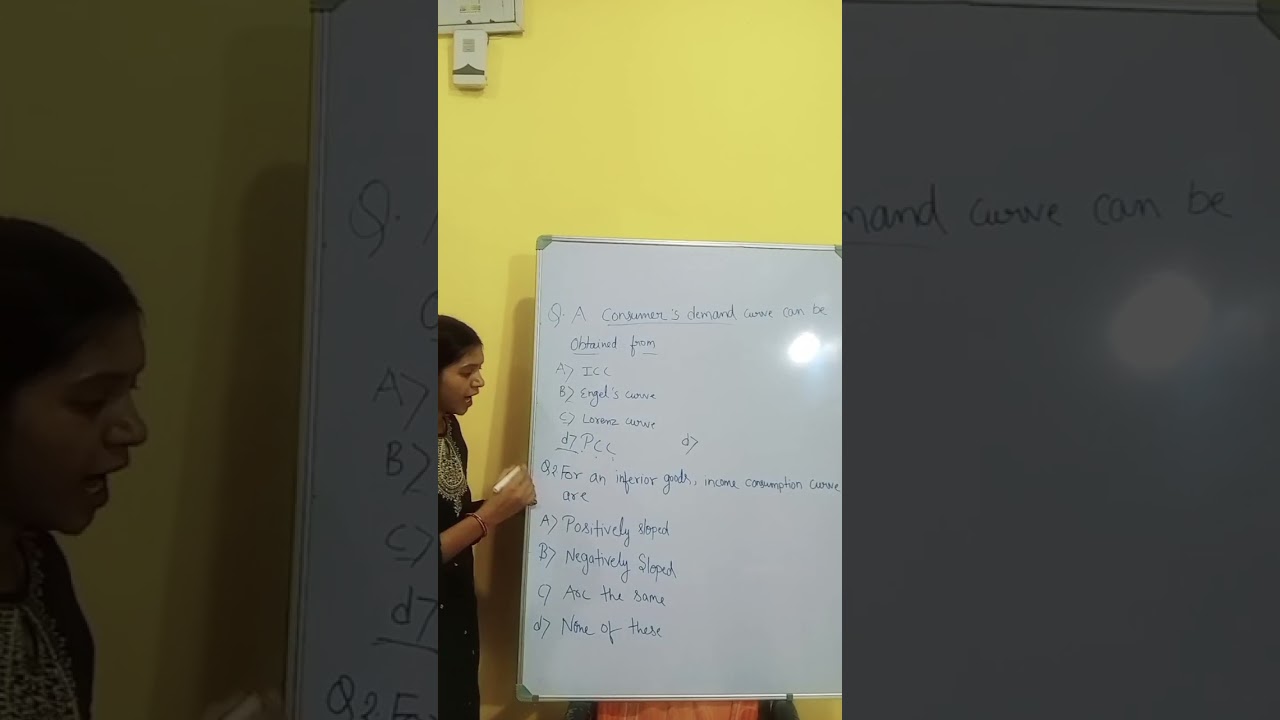 Q. A Consumer's demand curve can be
Obtained from
A> ICC
B> Engel's curve
C> Lorenz curve
d> PCC d>
Q2 For an inferior goods, income consumption curve
are
A> Positively sloped
B> Negatively Sloped
C) Are the same
d> None of these